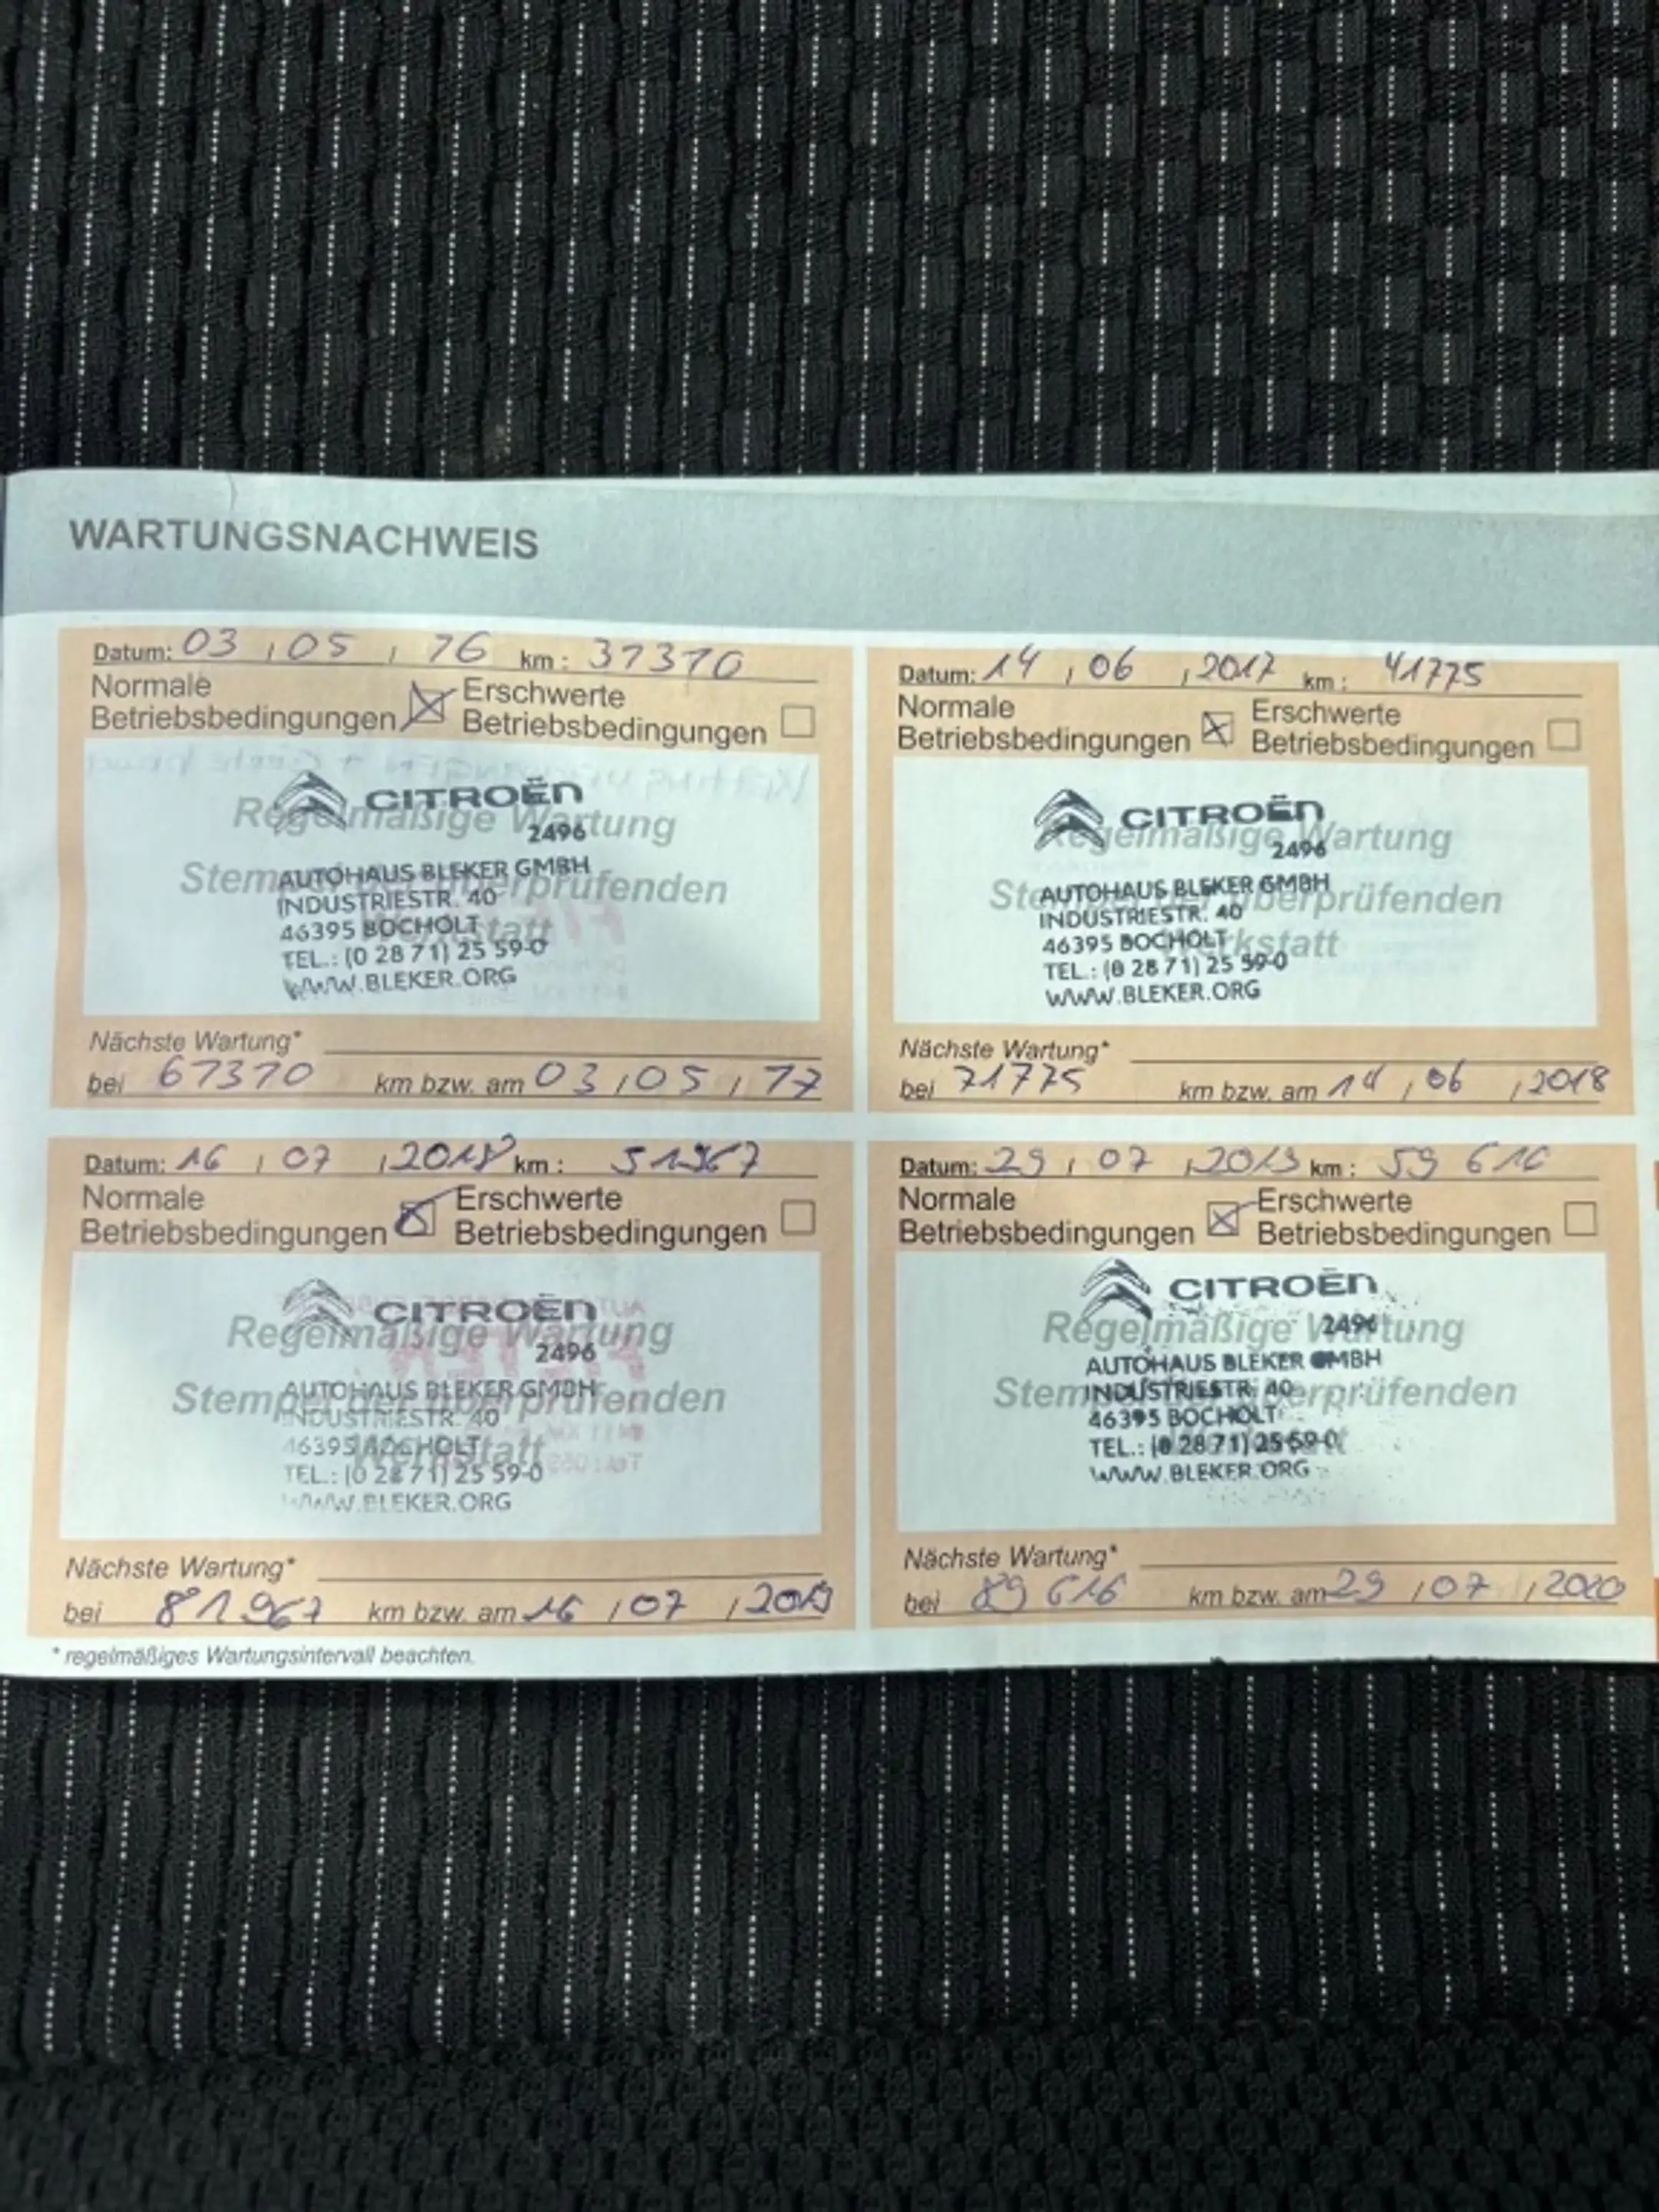 WARTUNGSNACHWEIS
Datum: 03 , 05 , 16 km : 37370
Normale Betriebsbedingungen Erschwerte Betriebsbedingungen
CITROËN
Regelmäßige Wartung
2496
Stempel der überprüfenden Werkstatt
AUTOHAUS BLEKER GMBH
INDUSTRIESTR. 40
46395 BOCHOLT
TEL.: (0 28 71) 25 59-0
WWW.BLEKER.ORG
Nächste Wartung*
bei 67370 km bzw. am 03 , 05 , 17
Datum: 14 , 06 , 2017 km : 41775
Normale Betriebsbedingungen Erschwerte Betriebsbedingungen
CITROËN
Regelmäßige Wartung
2496
Stempel der überprüfenden Werkstatt
AUTOHAUS BLEKER GMBH
INDUSTRIESTR. 40
46395 BOCHOLT
TEL.: (0 28 71) 25 59-0
WWW.BLEKER.ORG
Nächste Wartung*
bei 71775 km bzw. am 14 , 06 , 2018
Datum: 16 , 07 , 2018 km : 51967
Normale Betriebsbedingungen Erschwerte Betriebsbedingungen
CITROËN
Regelmäßige Wartung
2496
Stempel der überprüfenden Werkstatt
AUTOHAUS BLEKER GMBH
INDUSTRIESTR. 40
46395 BOCHOLT
TEL.: (0 28 71) 25 59-0
WWW.BLEKER.ORG
Nächste Wartung*
bei 81967 km bzw. am 16 , 07 , 2019
Datum: 29 , 07 , 2019 km : 59 616
Normale Betriebsbedingungen Erschwerte Betriebsbedingungen
CITROËN
Regelmäßige Wartung
2496
Stempel der überprüfenden Werkstatt
AUTOHAUS BLEKER GMBH
INDUSTRIESTR. 40
46395 BOCHOLT
TEL.: (0 28 71) 25 59-0
WWW.BLEKER.ORG
Nächste Wartung*
bei 89 616 km bzw. am 29 , 07 , 2020
* regelmäßiges Wartungsintervall beachten.